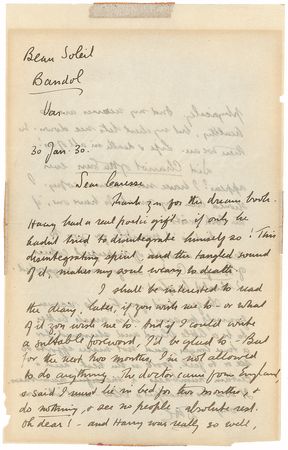 Beau Soleil
Bandol
Var
30 Jan. 30.
Dear Caresse
Thank you for the dream book.
Harry had a real poetic gift - if only he
hadn't tried to disintegrate himself so! This
disintegrating spirit, and the tangled sound
of it, makes my soul weary to death.
I shall be interested to read
the diary, later, if you wish me to - or what
of it you wish me to. And if I could write
a suitable foreword, I'd be glad to - But
for the next two months, I'm not allowed
to do anything. The doctor came from England,
& said I must lie in bed for two months, &
do nothing, & see no people - absolute rest.
Oh dear! - and Harry was really so well,